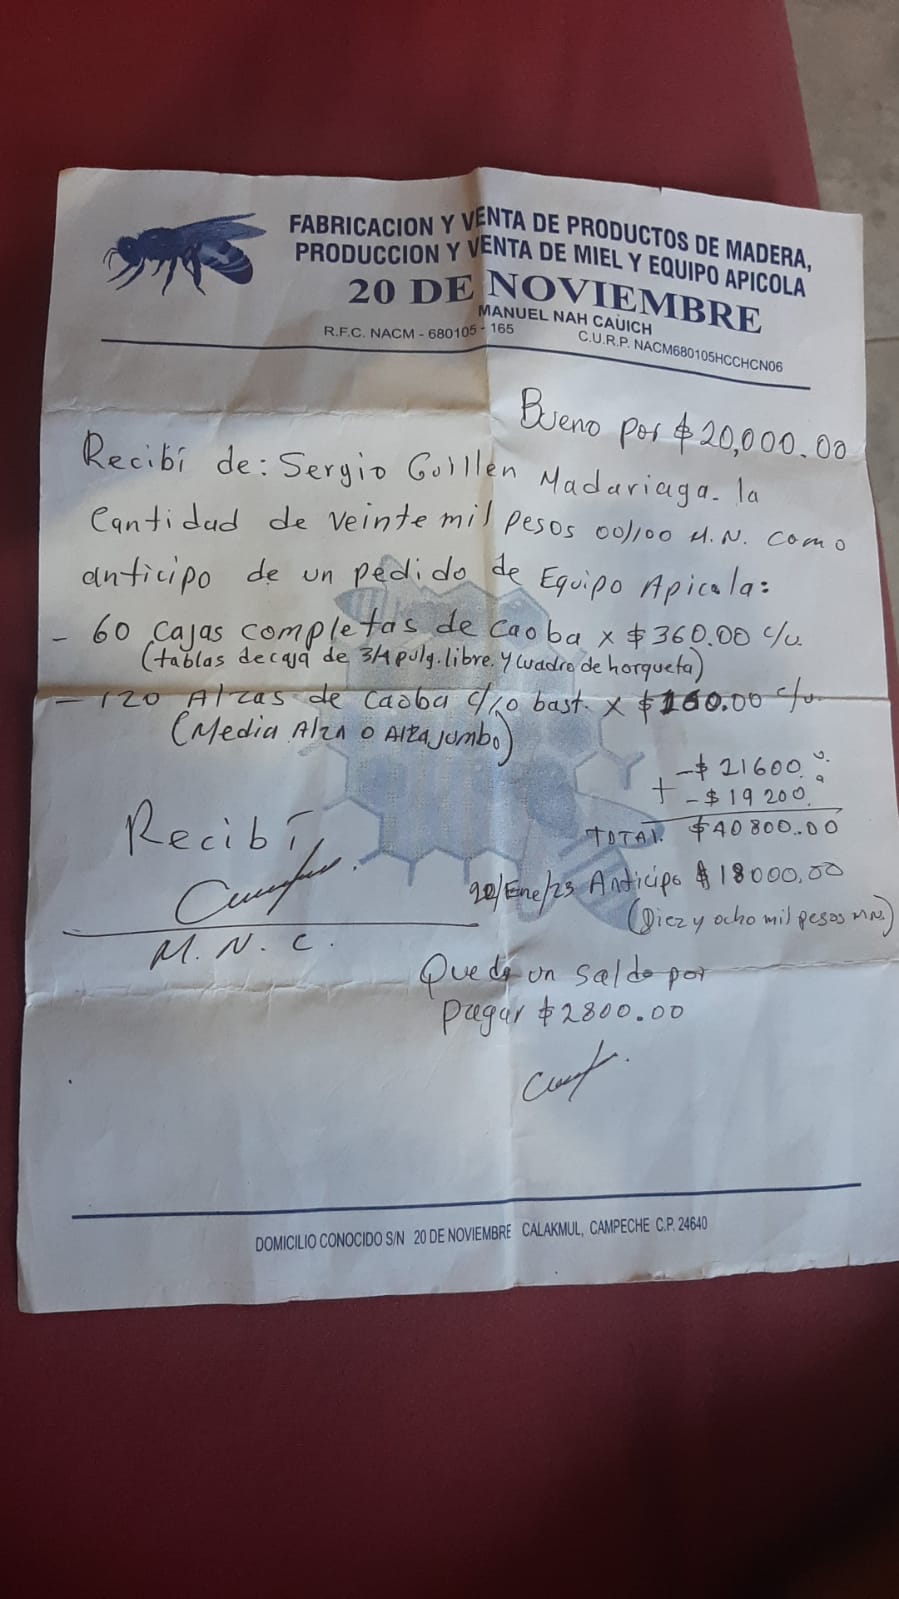 FABRICACION Y VENTA DE PRODUCTOS DE MADERA,
PRODUCCION Y VENTA DE MIEL Y EQUIPO APICOLA
20 DE NOVIEMBRE
MANUEL NAH CAUICH
R.F.C. NACM - 680105 - 165 C.U.R.P. NACM680105HCCHCN06
Bueno por $20,000.00
Recibí de: Sergio Guillen Madariaga. la
Cantidad de veinte mil pesos 00/100 M.N. como
anticipo de un pedido de Equipo Apicola:
- 60 Cajas completas de Caoba x $360.00 c/u.
(tablas de caja de 3/4 pulg. libre. y cuadro de horqueta)
- 120 Alzas de Caoba c/10 bast. x $160.00 c/u.
(Media Alza o Alza Jumbo)
- $ 21600.
+ - $ 19200.
TOTAL $40800.00
Recibí
20/Ene/23 Anticipo $18000.00
(Diez y ocho mil pesos MN.)
M. N. C.
Queda un saldo por
pagar $2800.00
DOMICILIO CONOCIDO S/N 20 DE NOVIEMBRE CALAKMUL, CAMPECHE C.P. 24640